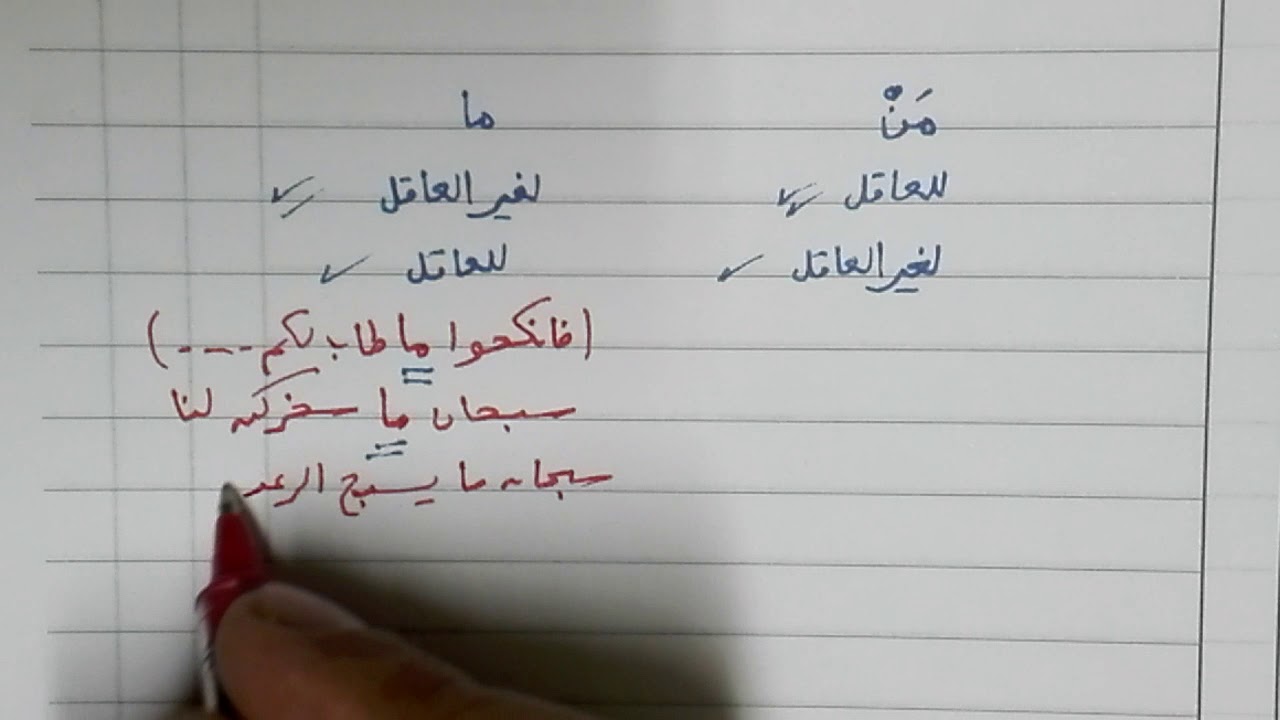 مَنْ ما
للعاقل لغير العاقل
لغير العاقل للعاقل
(فانكحوا ما طاب لكم ----)
سبحان ما سخركن لنا
سبحان ما يسبح الرعد